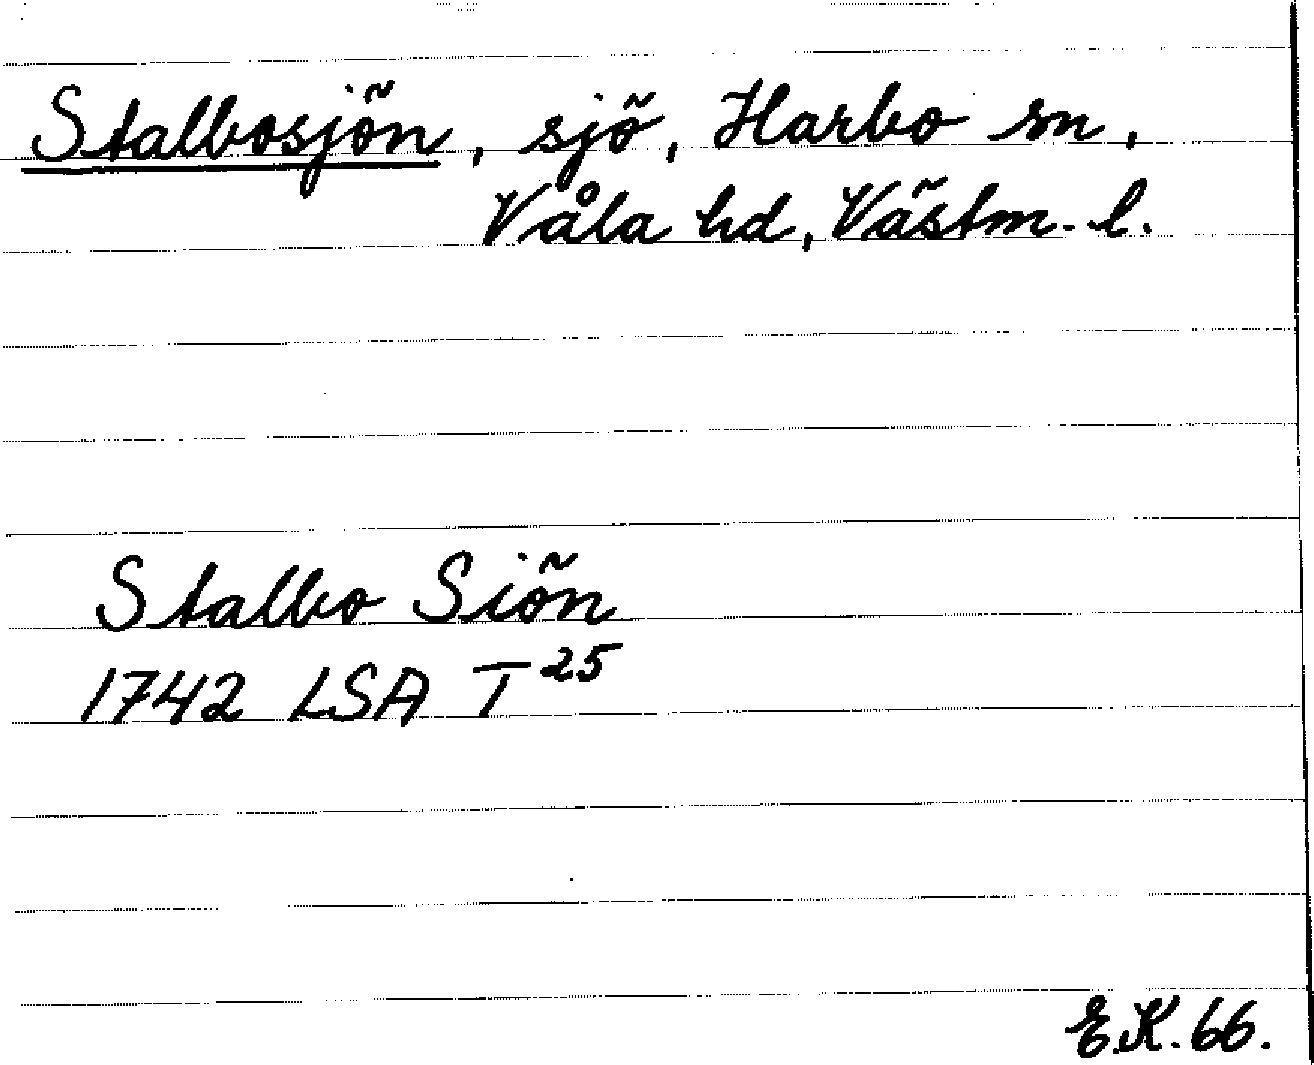 Stalbosjön, sjö, Harbo sn,
Våla hd, Västm. l.
Stalbo Siön
1742 LSA T 25
E.K. 66.